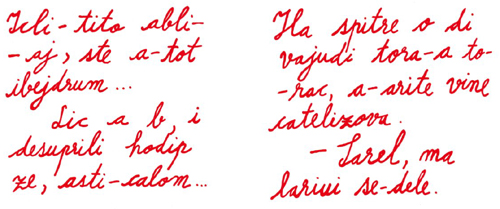 Icli-tito abli-
-aj, ste a-tot
ibejdrum...
Lic a b, i
desuprili hodip
ze, asti-calom...
Ha spitre o di
vajudi tora-a to-
-rac, a-arite vine
catelizova.
- Larel, ma
lariui se-dele.